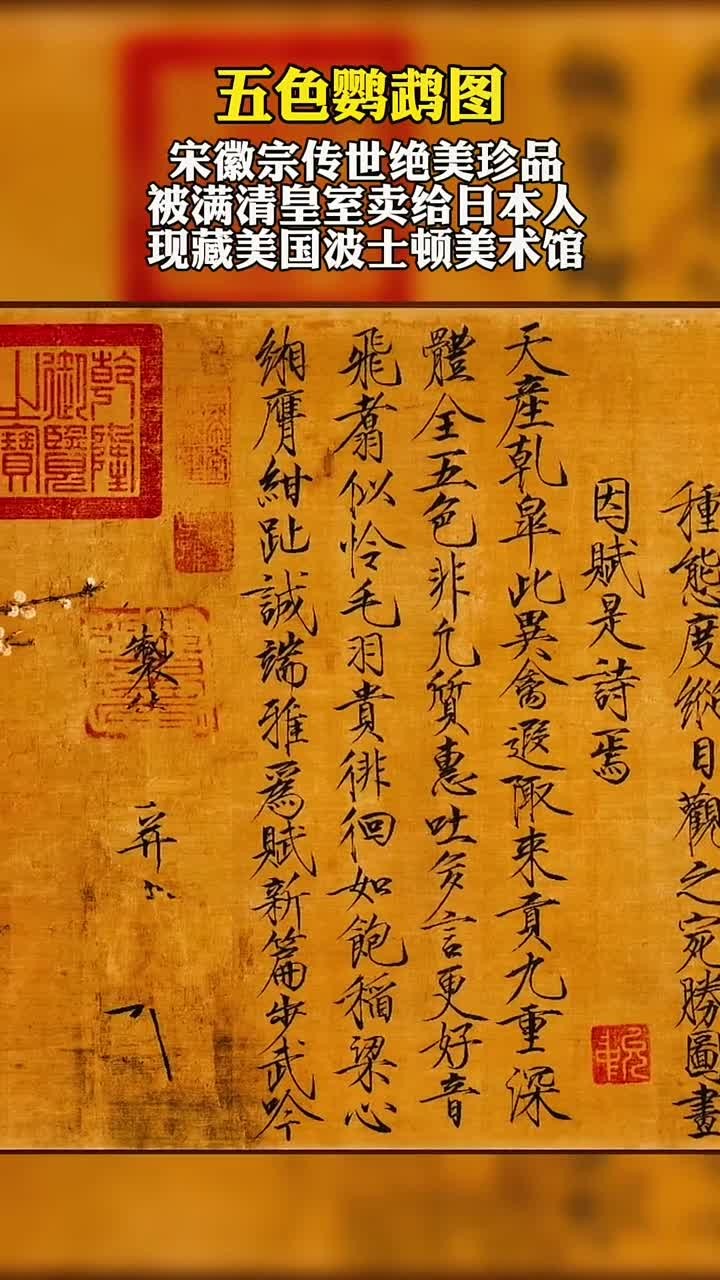 五色鹦鹉图
宋徽宗传世绝美珍品
被满清皇室卖给日本人
现藏美国波士顿美术馆
種態度縱目觀之宛勝圖畫
因賦是詩焉
天產乾皋此異禽遐陬來貢九重深
體全五色非凡質惠吐多言更好音
飛翥似怜毛羽貴徘徊如飽稻粱心
緗膺紺趾誠端雅爲賦新篇步武吟
製
并
乾隆
御覽
之寶